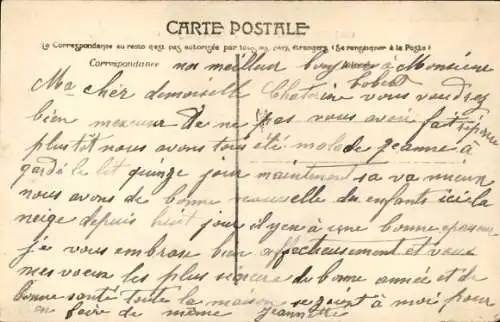 CARTE POSTALE
La Correspondance au recto n'est pas autorisée par tous les pays étrangers (Se renseigner à la Poste)
Correspondance un meilleur bonjour à Monsieur
Ma cher demoiselle vous voudrez
bien mexcuser de ne pas vous avoir fait réponse
plustôt nous avons tous été malade jeanne à
gardé le lit quinze jour maintenent sa va mieux
nous avons de bonne nouvelle du enfants ici la
neige depuis huit jour il y en à une bonne epaisseur
je vous embrase bien affectueusement et vous
mes voeux les plus sincere de bonne année et de
bonne santé toute la maison se joint à moi pour
en faire de même jeannette